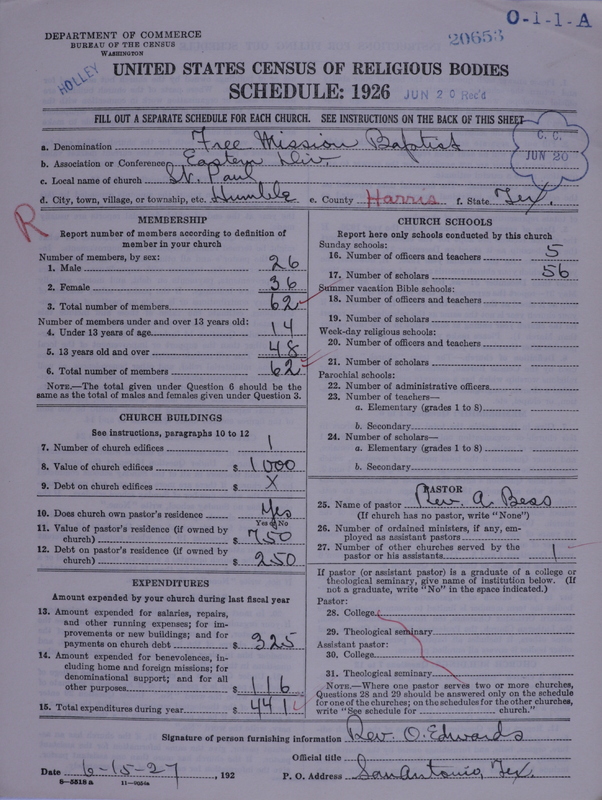 O-1-1-A
DEPARTMENT OF COMMERCE
BUREAU OF THE CENSUS
WASHINGTON
20653
HOLLEY
UNITED STATES CENSUS OF RELIGIOUS BODIES
SCHEDULE: 1926
JUN 20 Rec'd
FILL OUT A SEPARATE SCHEDULE FOR EACH CHURCH. SEE INSTRUCTIONS ON THE BACK OF THIS SHEET
C. C.
JUN 20
a. Denomination Free Mission Baptist
b. Association or Conference Eastern Div.
c. Local name of church St. Paul
d. City, town, village, or township, etc. Humble e. County Harris f. State Tex.
R
MEMBERSHIP
Report number of members according to definition of
member in your church
Number of members, by sex:
1. Male 26
2. Female 36
3. Total number of members 62
Number of members under and over 13 years old:
4. Under 13 years of age 14
5. 13 years old and over 48
6. Total number of members 62
NOTE.—The total given under Question 6 should be the
same as the total of males and females given under Question 3.
CHURCH BUILDINGS
See instructions, paragraphs 10 to 12
7. Number of church edifices 1
8. Value of church edifices $ 1000
9. Debt on church edifices $ X
10. Does church own pastor's residence Yes
Yes or No
11. Value of pastor's residence (if owned by
church) $ 750
12. Debt on pastor's residence (if owned by
church) $ 250
EXPENDITURES
Amount expended by your church during last fiscal year
13. Amount expended for salaries, repairs,
and other running expenses; for im-
provements or new buildings; and for
payments on church debt $ 325
14. Amount expended for benevolences, in-
cluding home and foreign missions; for
denominational support; and for all
other purposes $ 116
15. Total expenditures during year $ 441
CHURCH SCHOOLS
Report here only schools conducted by this church
Sunday schools:
16. Number of officers and teachers 5
17. Number of scholars 56
Summer vacation Bible schools:
18. Number of officers and teachers
19. Number of scholars
Week-day religious schools:
20. Number of officers and teachers
21. Number of scholars
Parochial schools:
22. Number of administrative officers
23. Number of teachers—
a. Elementary (grades 1 to 8)
b. Secondary
24. Number of scholars—
a. Elementary (grades 1 to 8)
b. Secondary
PASTOR
25. Name of pastor Rev. A. Bess
(If church has no pastor, write "None")
26. Number of ordained ministers, if any, em-
ployed as assistant pastors
27. Number of other churches served by the
pastor or his assistants 1
If pastor (or assistant pastor) is a graduate of a college or
theological seminary, give name of institution below. (If
not a graduate, write "No" in the space indicated.)
Pastor:
28. College
29. Theological seminary
Assistant pastor:
30. College
31. Theological seminary
NOTE.—Where one pastor serves two or more churches,
Questions 28 and 29 should be answered only on the schedule
for one of the churches; on the schedules for the other churches,
write "See schedule for church."
Signature of person furnishing information Rev. O. Edwards
Official title
Date 6-15-27, 192 P. O. Address San Antonio, Tex.
8-5518 a 11-9054a